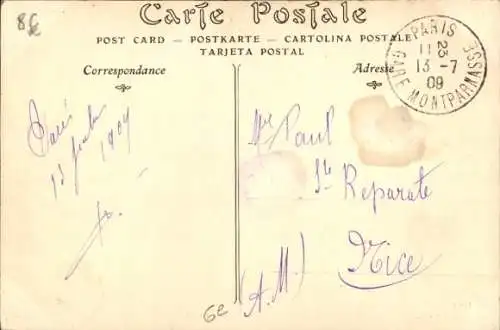 8€
Carte Postale
POST CARD — POSTKARTE — CARTOLINA POSTALE
TARJETA POSTAL
Correspondance
Adresse
PARIS
11 23
13 - 7
09
GARE MONTPARNASSE
Paris
13 juillet
1909
Mr Paul
Ste Reparate
Nice
(A.M.)
6e